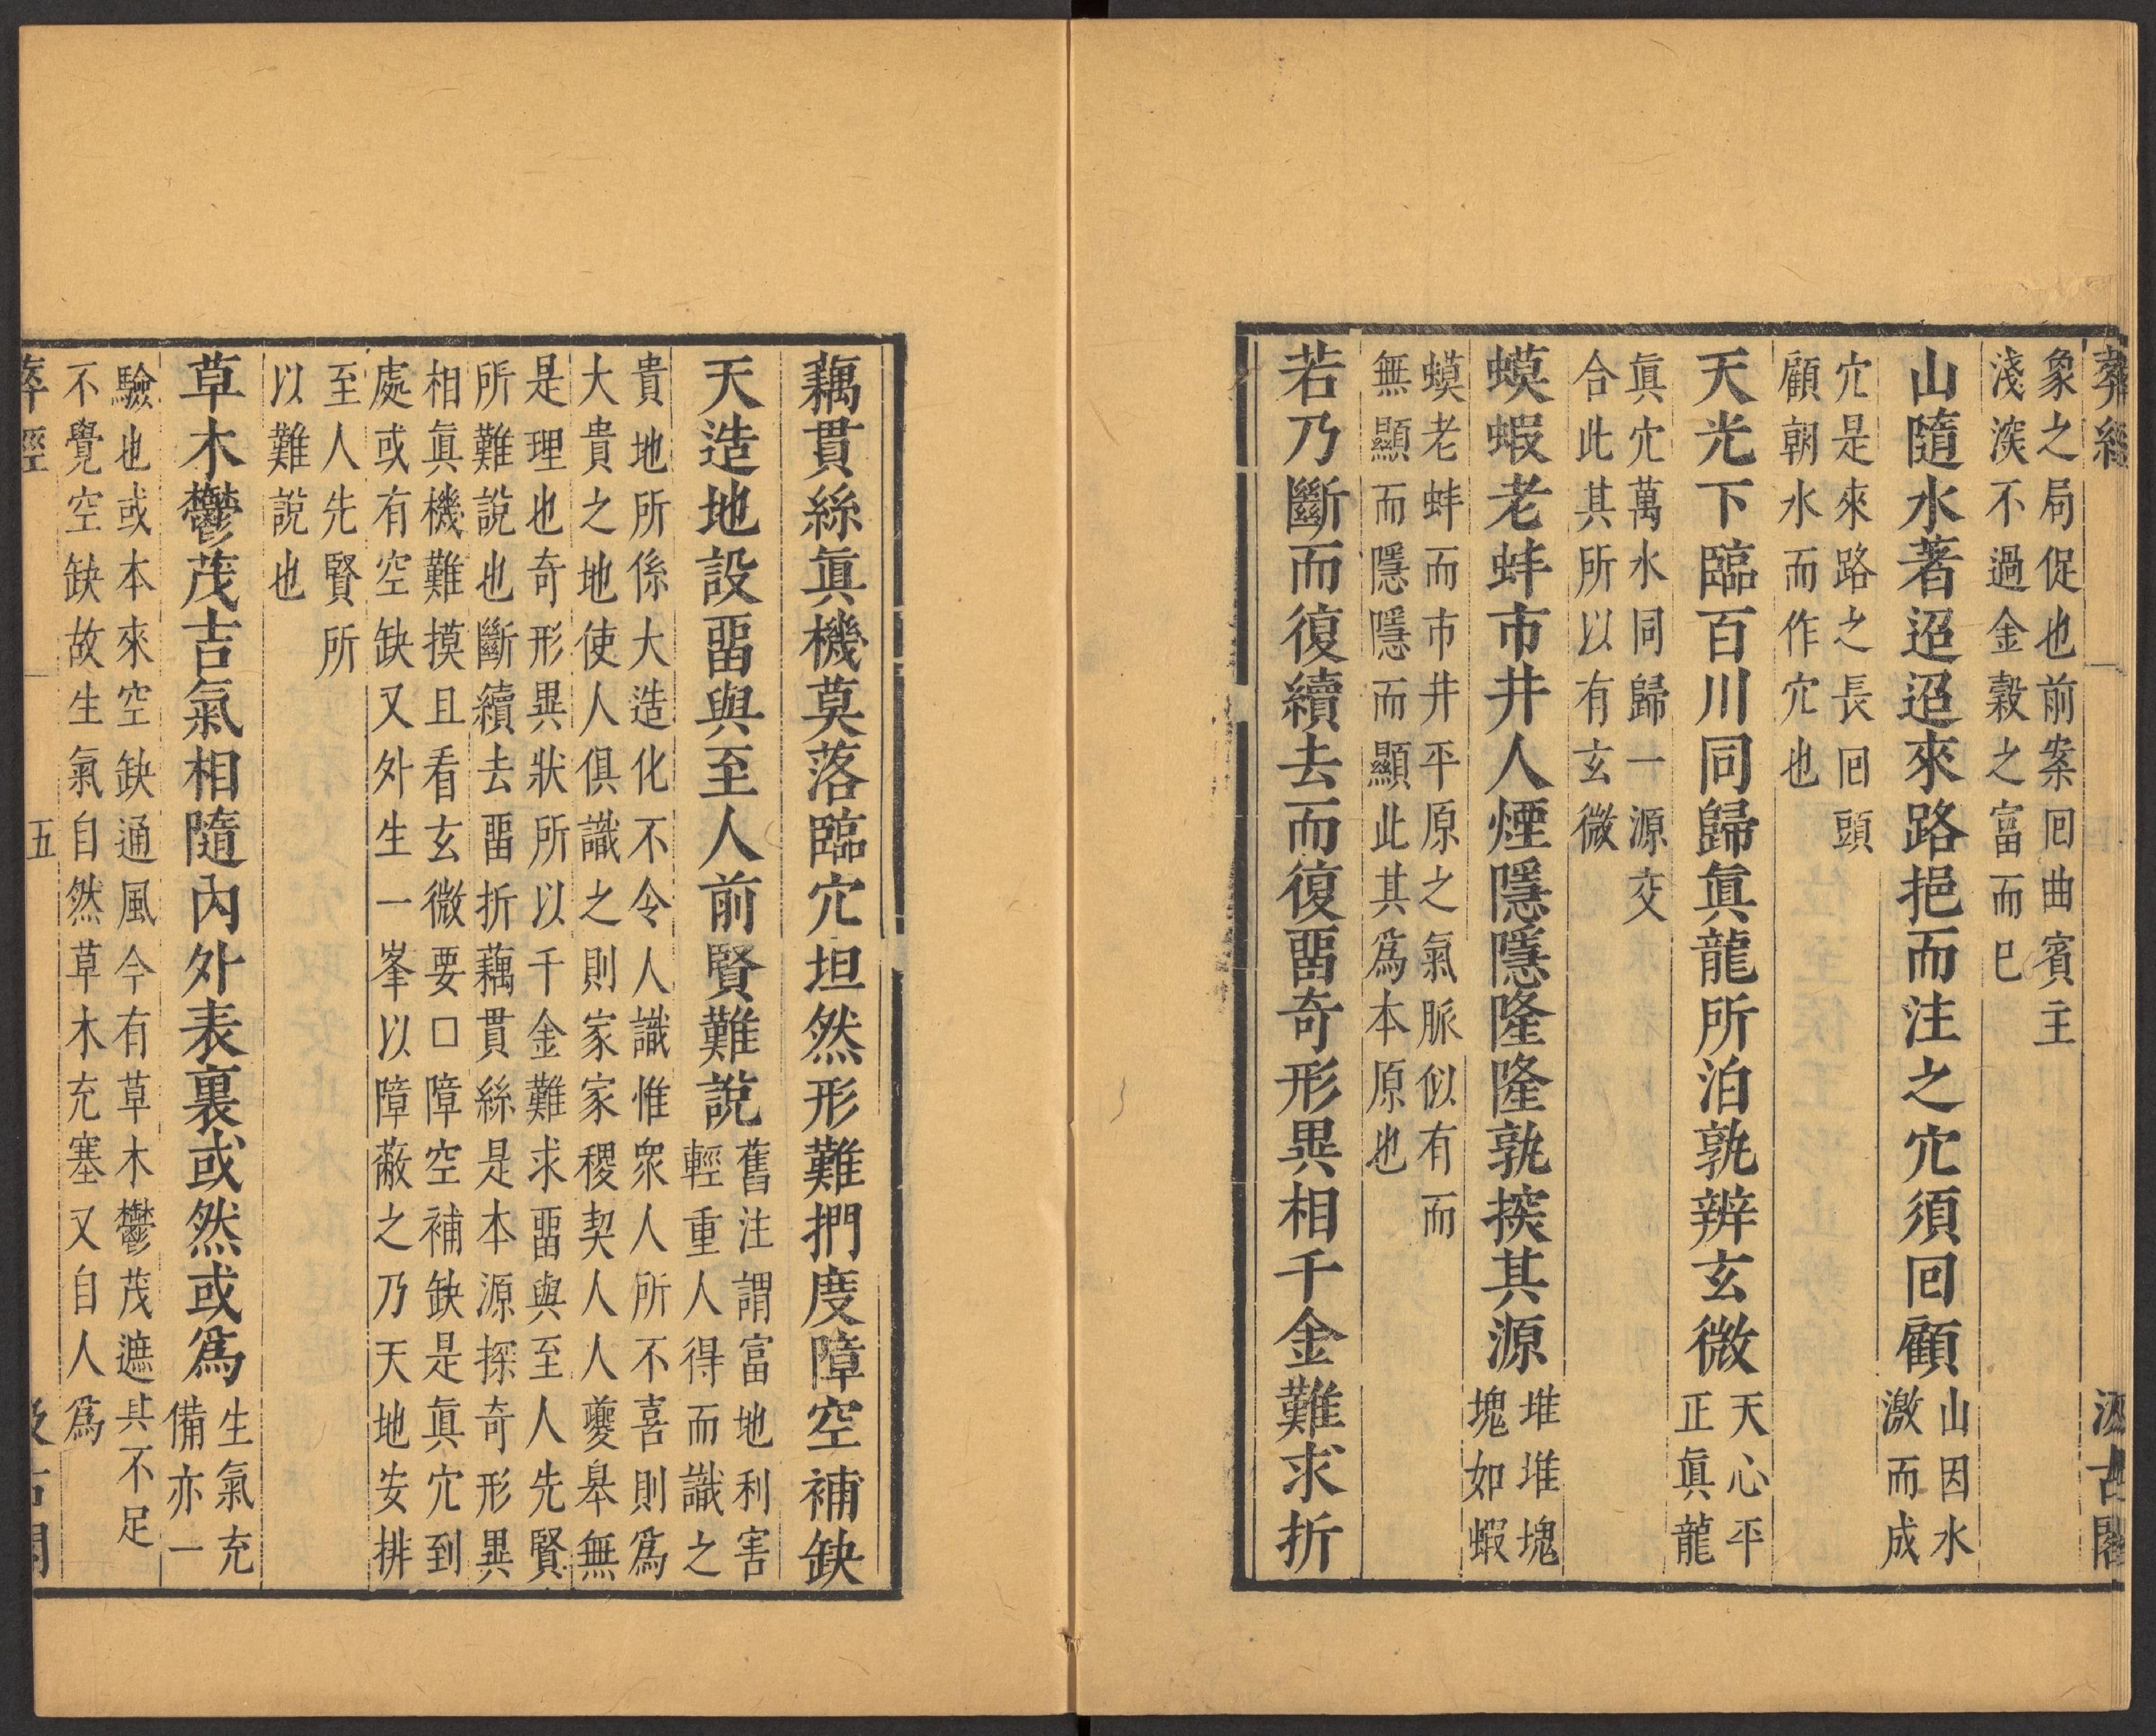 葬經
汲古閣
象之局促也前案囘曲賓主
淺深不過金穀之富而已
山隨水著迢迢來路挹而注之穴須囘顧
山因水
激而成
穴是來路之長囘頭
顧朝水而作穴也
天光下臨百川同歸眞龍所泊孰辨玄微
天心平
正眞龍
眞穴萬水同歸一源交
合此其所以有玄微
蟆蝦老蚌市井人煙隱隱隆隆孰探其源
堆堆塊
塊如蝦
蟆老蚌而市井平原之氣脈似有而
無顯而隱隱而顯此其爲本原也
若乃斷而復續去而復畱奇形異相千金難求折
藕貫絲眞機莫落臨穴坦然形難捫度障空補缺
天造地設畱與至人前賢難說
舊注謂富地利害
輕重人得而識之
貴地所係大造化不令人識惟眾人所不喜則爲
大貴之地使人俱識之則家家稷契人人夔皋無
是理也奇形異狀所以千金難求畱與至人先賢
所難說也斷續去畱折藕貫絲是本源探奇形異
相眞機難摸且看玄微要口障空補缺是眞穴到
處或有空缺又外生一峯以障蔽之乃天地安排
至人先賢所
以難說也
草木鬱茂吉氣相隨內外表裏或然或爲
生氣充
備亦一
驗也或本來空缺通風今有草木鬱茂遮其不足
不覺空缺故生氣自然草木充塞又自人爲
葬經
五
汲古閣